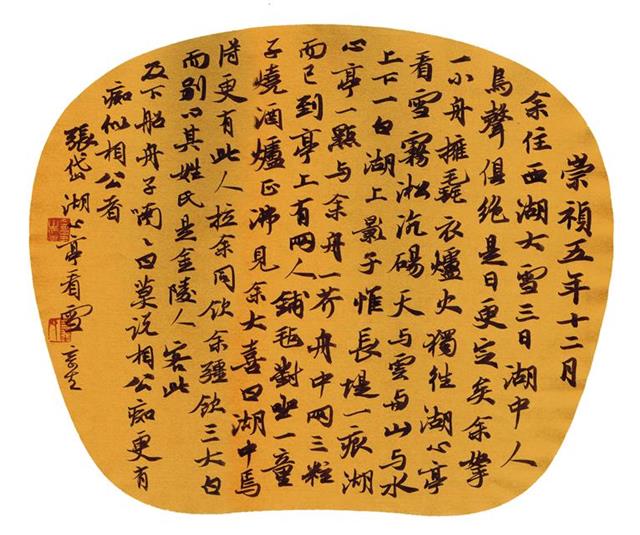 崇禎五年十二月
余住西湖大雪三日湖中人
鳥聲俱絕是日更定矣余拏
一小舟擁毳衣爐火獨往湖心亭
看雪霧淞沆碭天與雲與山與水
上下一白湖上影子惟長堤一痕湖
心亭一點與余舟一芥舟中兩三粒
而已到亭上有兩人鋪氈對坐一童
子燒酒爐正沸見余大喜曰湖中焉
得更有此人拉余同飲余彊飲三大白
而別問其姓氏是金陵人客此
及下船舟子喃〻曰莫說相公痴更有
痴似相公者
張岱湖心亭看雪